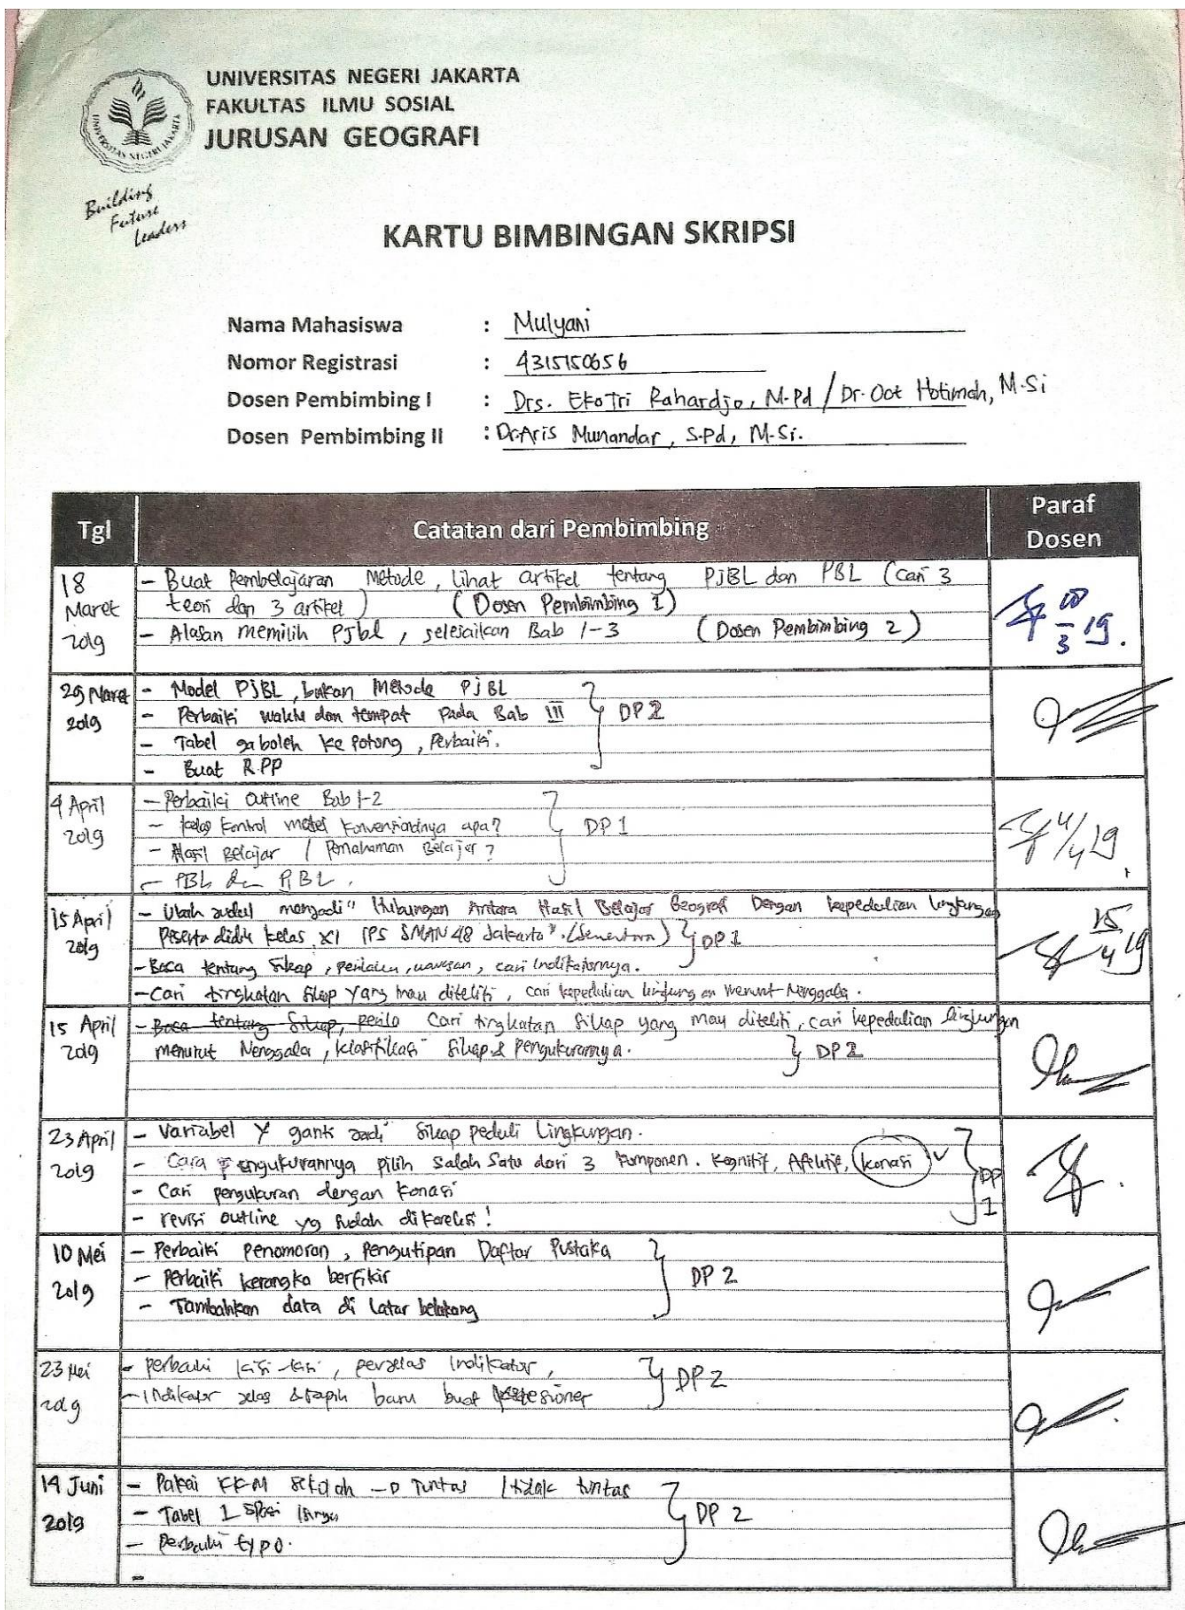 UNIVERSITAS NEGERI JAKARTA
FAKULTAS ILMU SOSIAL
JURUSAN GEOGRAFI
UNIVERSITAS NEGERI JAKARTA
Building
Future
Leaders
KARTU BIMBINGAN SKRIPSI
Nama Mahasiswa : Mulyani
Nomor Registrasi : 4315150656
Dosen Pembimbing I : Drs. Eko Tri Rahardjo, M.Pd / Dr. Oot Hotimah, M.Si
Dosen Pembimbing II : Dr. Aris Munandar, S.Pd, M.Si.
Tgl Catatan dari Pembimbing Paraf Dosen
18 Maret 2019
- Buat Pembelajaran Metode, lihat artikel tentang PJBL dan PBL (cari 3
teori dan 3 artikel) (Dosen Pembimbing 1)
- Alasan memilih PJbl, selesaikan Bab 1-3 (Dosen Pembimbing 2)
29 Maret 2019
- Model PJBL, bukan Metode PJBL
- Perbaiki waktu dan tempat Pada Bab III DP2
- Tabel ga boleh ke potong, Perbaiki.
- Buat RPP
4 April 2019
- Perbaiki Outline Bab 1-2
- kelas kontrol model konvensionalnya apa? DP 1
- Hasil Belajar / Pemahaman Belajar?
- PBL dan PJBL.
4/4 19
15 April 2019
- Ubah judul menjadi "Hubungan Antara Hasil Belajar Geografi Dengan kepedulian lingkungan
Peserta didik kelas XI IPS SMAN 48 Jakarta". (Sementara) DP1
- Baca tentang Sikap, perilaku, , cari Indikatornya.
- Cari tingkatan Sikap yang mau diteliti, cari kepedulian lingkungan menurut Nenggala.
15/4 19
15 April 2019
- Baca tentang Sikap, perila Cari tingkatan Sikap yang mau diteliti, cari kepedulian lingkungan
menurut Nenggala, klasifikasi Sikap & Pengukurannya. DP 2
23 April 2019
- Variabel Y ganti jadi Sikap peduli Lingkungan.
- Cara Pengukurannya pilih Salah Satu dari 3 komponen. Kognitif, Afektif, (konasi)
- Cari pengukuran dengan konasi
- revisi outline yg sudah di koreksi!
DP 1
10 Mei 2019
- Perbaiki Penomoran, Pengutipan Daftar Pustaka
- Perbaiki kerangka berfikir DP 2
- Tambahkan data di latar belakang
23 Mei 2019
- perbaiki kisi-kisi, perjelas Indikator,
- Indikator jelas & rapih baru buat DP2
14 Juni 2019
- Pakai KKM Sekolah → Tuntas / tidak tuntas
- Tabel 1 Spasi isinya DP 2
- Perbaiki typo.
-